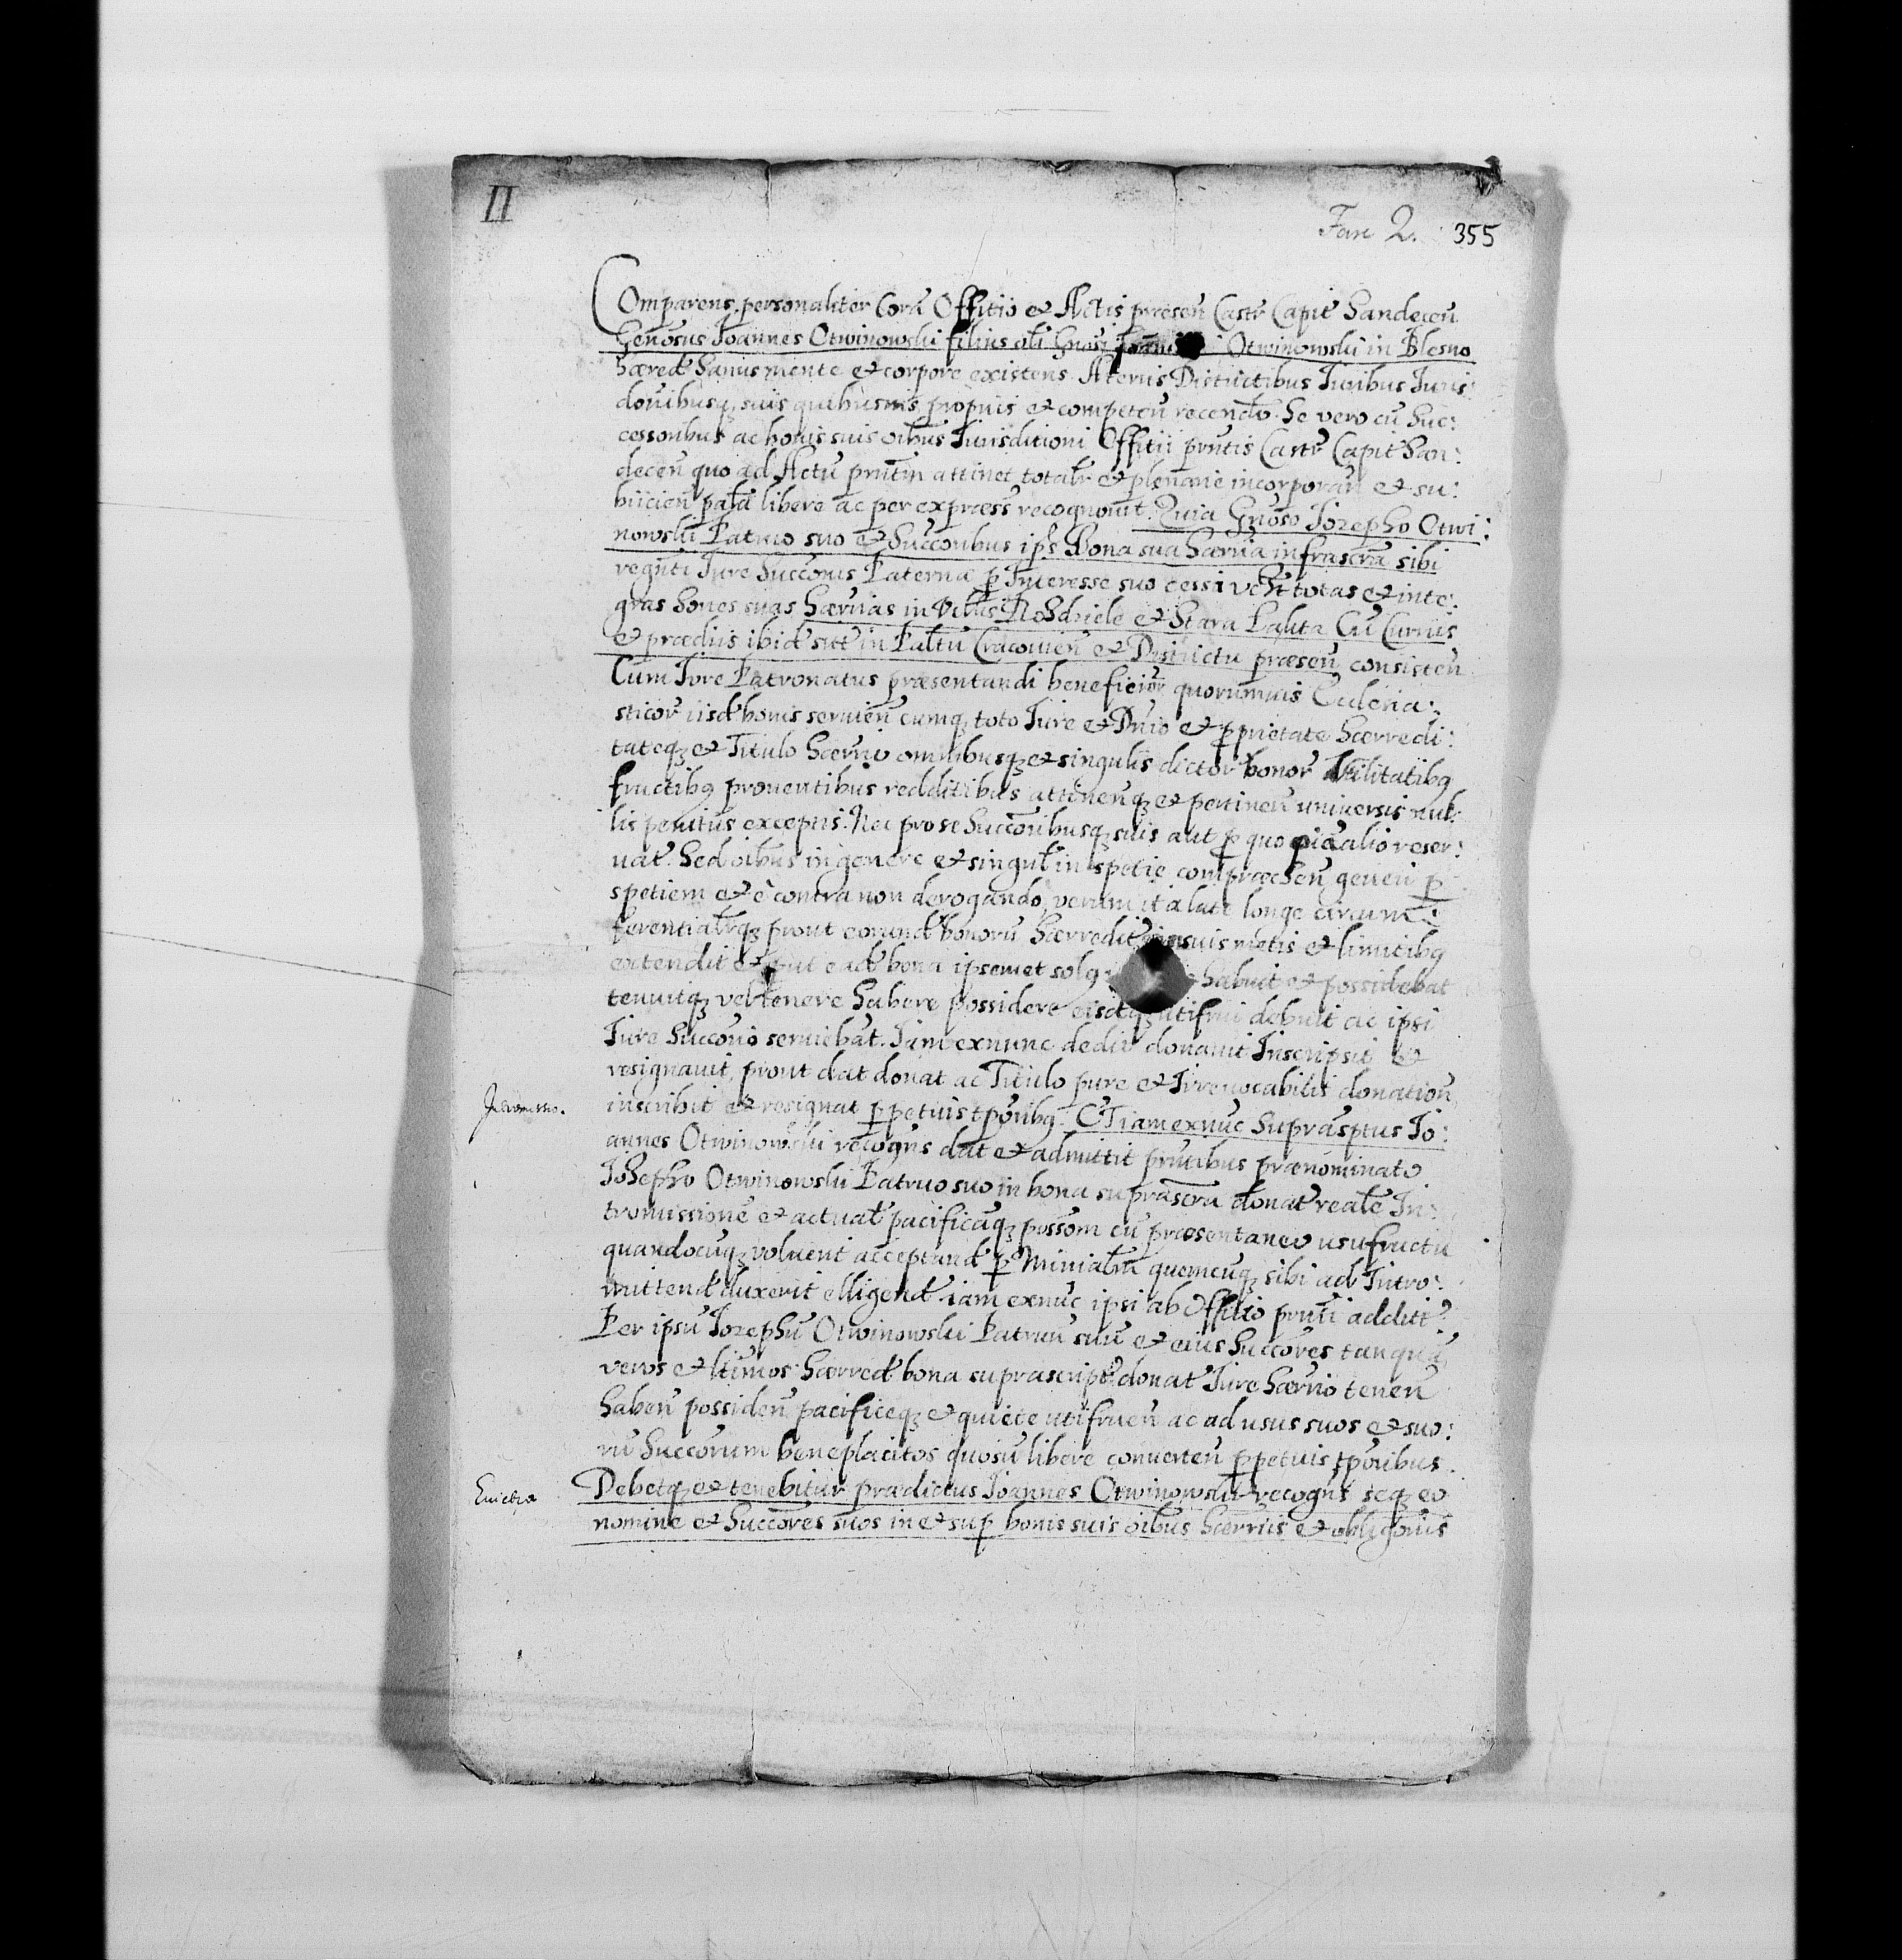 II
Fasc 2. 355
Comparens personaliter Corā Offitio et Actis præsen̄ Castr Capit Sandecen̄
Gen̄osus Ioannes Otwinowski filius oli Gnosi Otwinowski in Blesno
hæred Sanus mente et corpore existens. A teruis Districtibus Iuribus Iuris:
dōnibusq suis quibusuis propriis et competen̄ recendo. Se vero cū Suc:
cessoribus ac bonis suis oībus Iurisditioni Offitii prntis Castr Capit San:
decen̄ quo ad Actū prntm attinet totalr et plenarie incorporan̄ et su:
biicien̄ palā libere ac per expræss recognouit. Quia Gnōso Iozepho Otwi:
nowski Patruo suo et Succōribus ips Bona sua hærria infrascrā sibi
reqnti Iure Succōnis Paternæ p Interesse suo cessi totas et inte:
gras sones suas hærrias in Villis Rożdziele et Stara Cū Curiis
et prædiis ibid sitt in Paltū Cracouien̄ et Districtu præsen̄ consisten̄
Cum Iure Patronatus præsentandi beneficior quorumuis Ecclesia:
sticor iisd bonis seruien̄ cumq toto Iure et Dnio et pprietate hærredi:
tateq et Titulo hærrio omnibusq et singulis dictor bonor vtilitatibq
fructibq prouentibus redditibus attinenq et pertinen̄ uniuersis nul:
lis penitus exceptis. Nec pro se Succōribusq suis aut p quo piā alio reser:
uat. Sed oībus in genere et singul in spetie compræhen̄ geneu p
spetiem et è contra non derogando, verum ita late longe circum:
ferentialrq prout eorund bonorū hærredit in suis metis et limitibq
extendit et put ead bona ipsemet solq habuit et possidebat
tenuitq vel tenere habere possidere eisdq utifrui debuit ac ipsi
Iure Succōno seruiebat. Iam exnunc dedit donauit Inscripsit et
resignauit, prout dat donat ac Titulo pure et Irreuocabilis donation̄
inscribit et resignat ppetuis tporibq. Et iam exnūc Suprasptus Io:
annes Otwinowski recogns dat et admittit prntibus prænominato
Iosepho Otwinowski Patruo suo in bona suprascra donat reale In:
tromissionē et actual pacificāq possom cū præsentaneo usufructu
quandocūq voluerit acceptand p Minialm quemcūq sibi ad Intro:
mittend duxerit elligend iam exnūc ipsi ab Offitio prnti additt
Per ipsū Iozephū Otwinowski Patruū suū et eius Succōres tanquā
veros et ltimos hærred bona suprascript donat Iure hærrio tenen̄
haben̄ possiden̄ pacificeq et quiete utifruen̄ ac ad usus suos et suo:
rū Succōrum beneplacitos quosū libere conuerten̄ ppetuis tporibus.
Debetq et tenebitur prædictus Ioannes Otwinowski recogns seq eo
nomine et Succōres suos in et sup bonis suis oībus hærriis et obligōnis
Intromissio.
Euictio